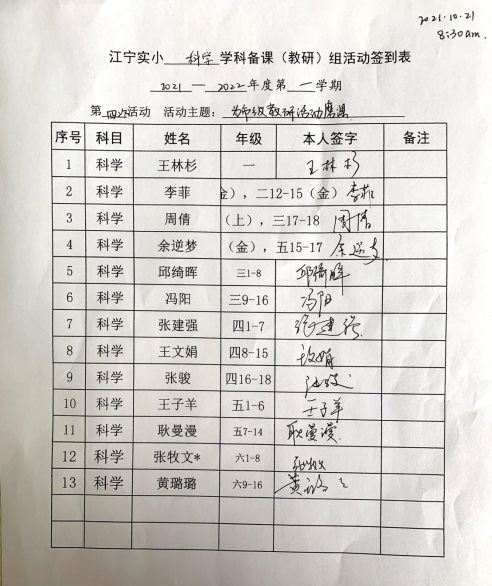 2021.10.21
8:30am.
江宁实小 科学 学科备课（教研）组活动签到表
2021 — 2022 年度第 一 学期
第 四次 活动 活动主题： 年级教研活动磨课
序号 科目 姓名 年级 本人签字 备注
1 科学 王林杉 一 王林杉
2 科学 李菲 金），二12-15（金） 李菲
3 科学 周倩 （上），三17-18 周倩
4 科学 余逆梦 （金），五15-17 余逆梦
5 科学 邱绮晖 三1-8 邱绮晖
6 科学 冯阳 三9-16 冯阳
7 科学 张建强 四1-7 张建强
8 科学 王文娟 四8-15
9 科学 张骏 四16-18 张骏
10 科学 王子羊 五1-6 王子羊
11 科学 耿曼漫 五7-14 耿曼漫
12 科学 张牧文* 六1-8 张牧
13 科学 黄璐璐 六9-16 黄璐